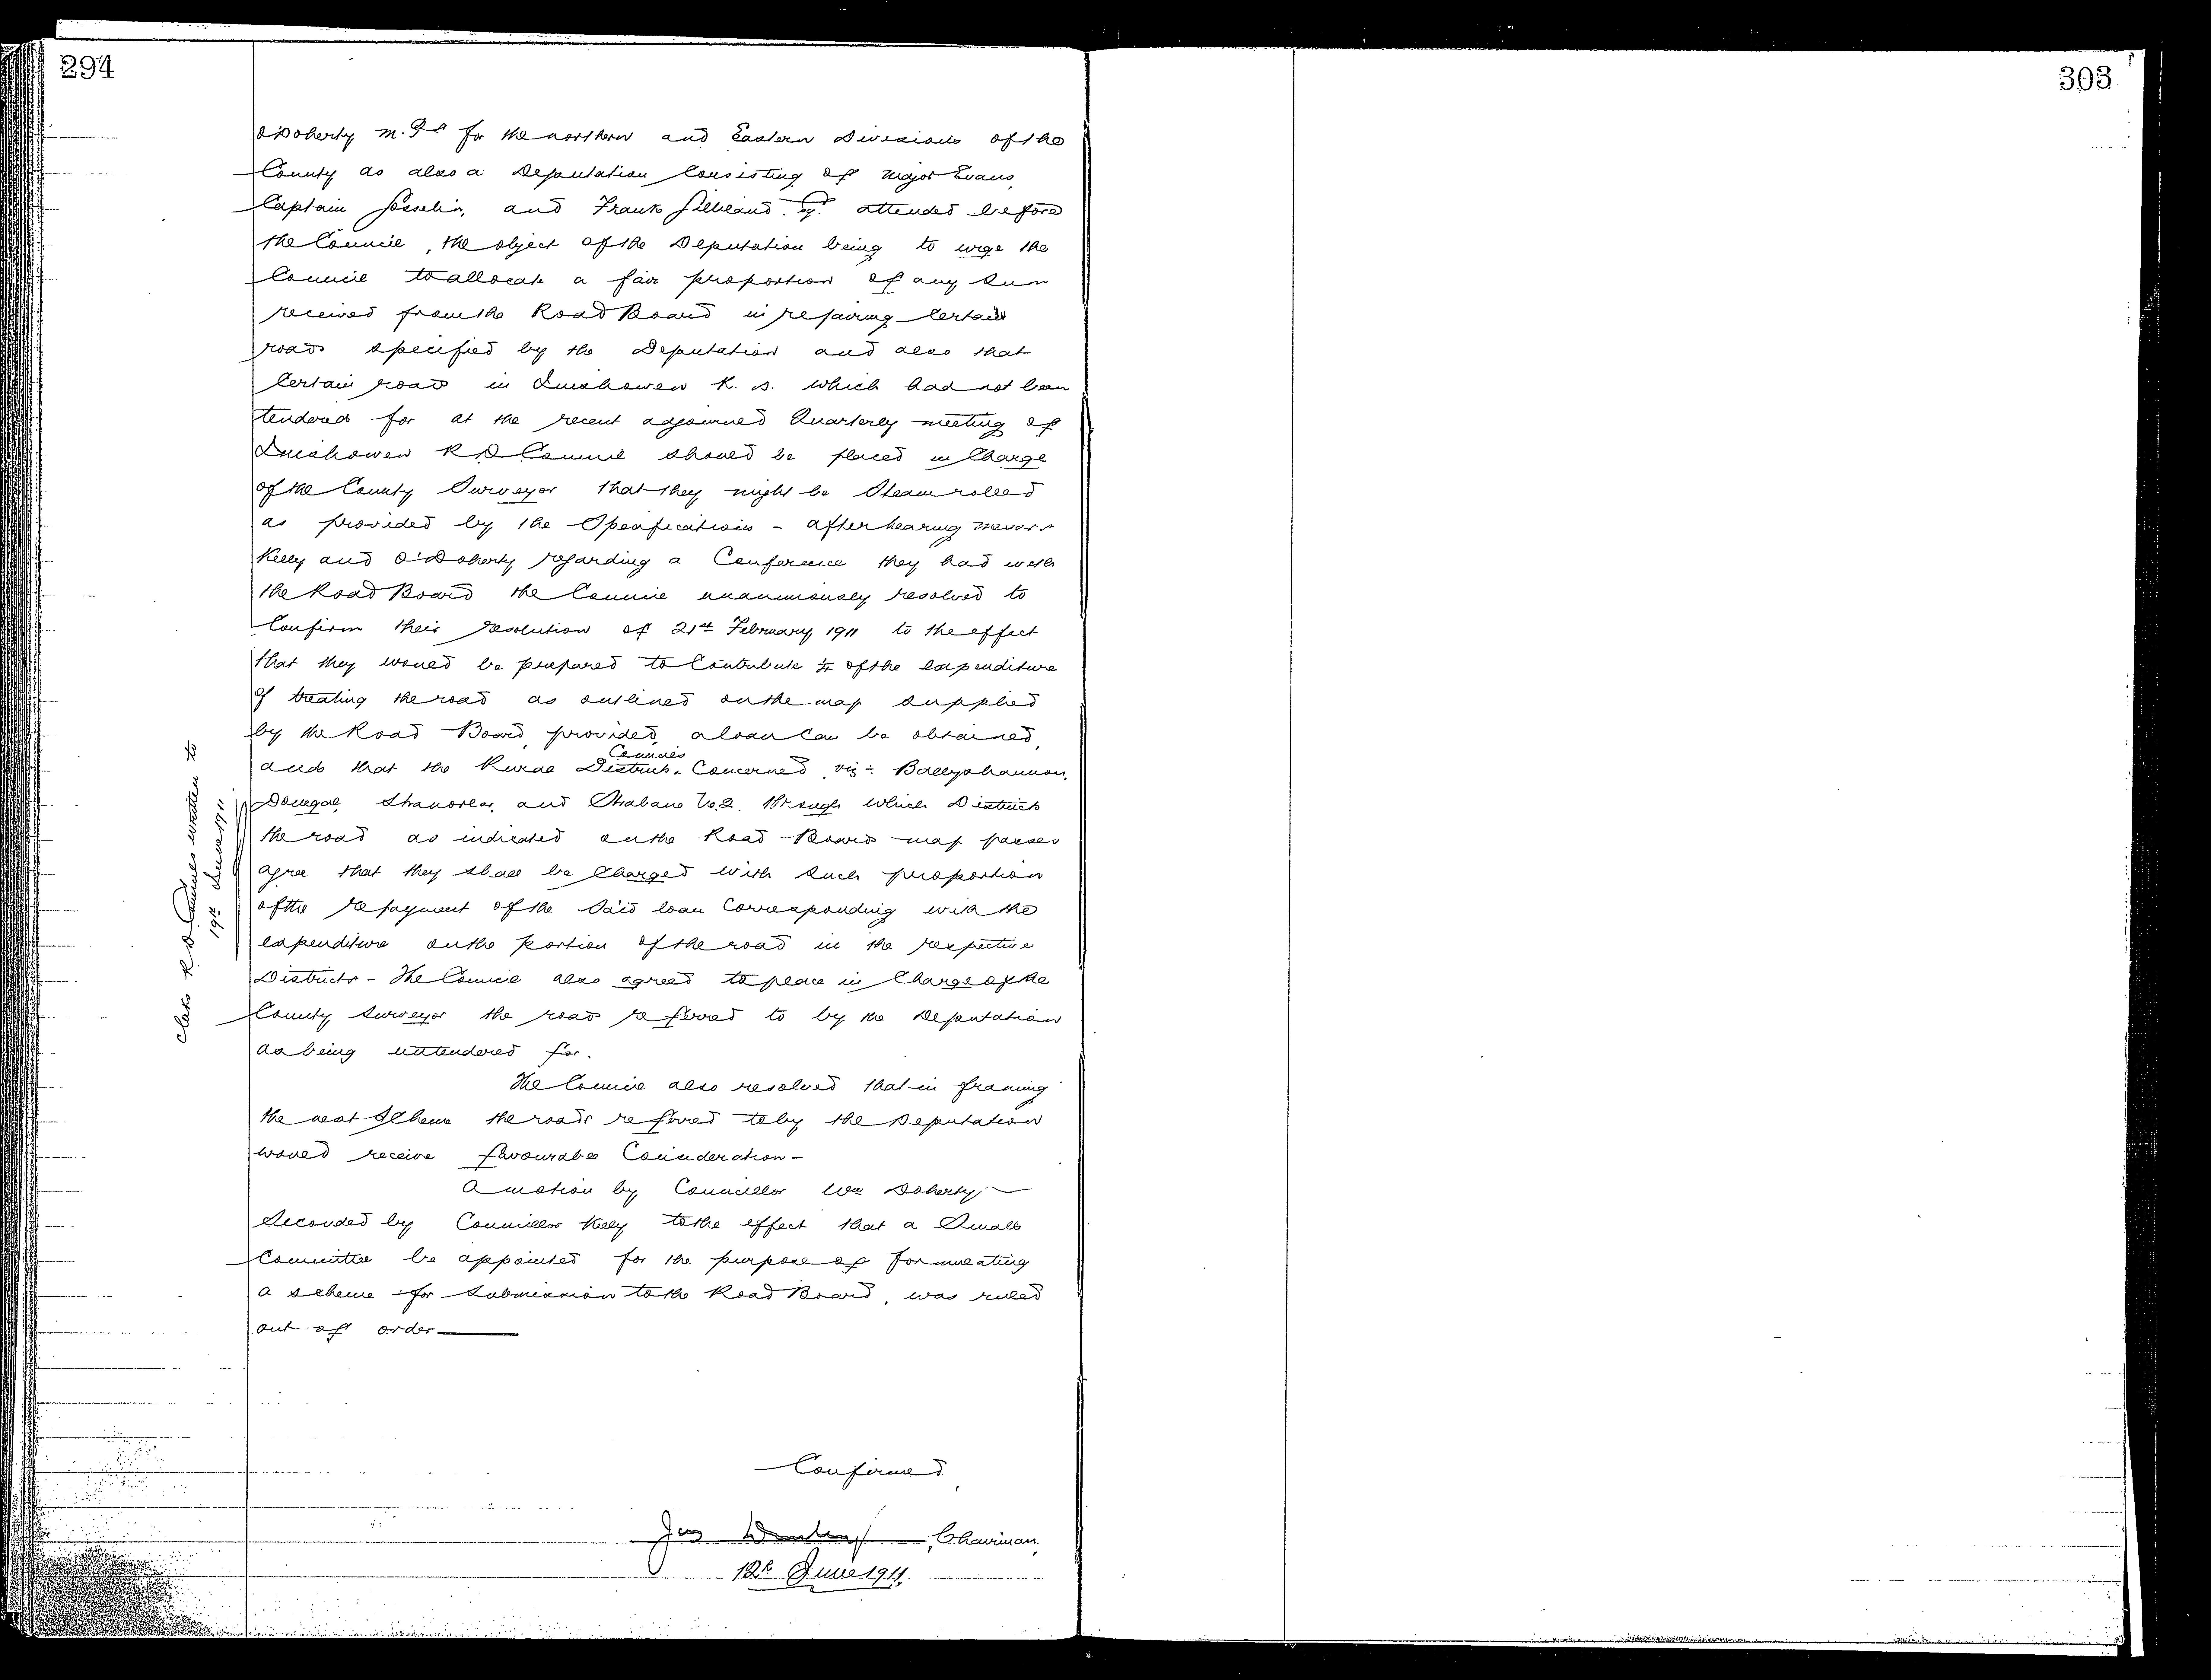 294
O'Doherty M.Ps for the northern and Eastern Divisions of the
County as also a Deputation Consisting of Major Evans,
Captain and Frank Gilliland Esq. attended before
the Council, the object of the Deputation being to urge the
Council to allocate a fair proportion of any Sum
received from the Road Board in repairing Certain
roads specified by the Deputation and also that
Certain roads in Inishowen R. D. which had not been
tendered for at the recent adjourned Quarterly meeting of
Inishowen R D Council should be placed in Charge
of the County Surveyor that they might be Steamrolled
as provided by the Specifications - after hearing Messrs
Kelly and O'Doherty regarding a Conference they had with
the Road Board the Council unanimously resolved to
Confirm their resolution of 21st February 1911 to the effect
that they would be prepared to Contribute ¼ of the expenditure
of treating the road as outlined on the map supplied
by the Road Board, provided a loan Can be obtained,
and that the Rural District Councils Concerned viz:- Ballyshannon,
Donegal, Stranorlar, and Strabane No. 2. through which Districts
the road as indicated on the Road-Board map passes
agree that they shall be Charged with such proportion
of the repayment of the said loan Corresponding with the
expenditure on the portion of the road in the respective
Districts - The Council also agreed to place in Charge of the
County Surveyor the roads referred to by the Deputation
as being untendered for.
The Council also resolved that in framing
the next Scheme the roads referred to by the Deputation
would receive favourable Consideration -
A motion by Councillor Wm Doherty,
Seconded by Councillor Kelly to the effect that a Small
Committee be appointed for the purpose of formulating
a scheme for Submission to the Road Board, was ruled
out of order
Clerks R. D Councils written to
19th June 1911
Confirmed
Jas Chairman,
12th June 1911.
303